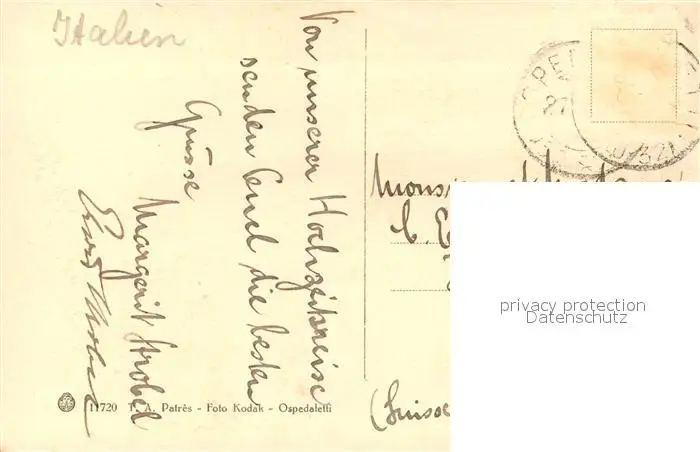 Italien
Von unserer Hochzeitsreise
senden Euch die besten
Grüsse
Margerit Strobel
11720 T. A. Patrès - Foto Kodak - Ospedaletti
(Suisse
privacy protection
Datenschutz